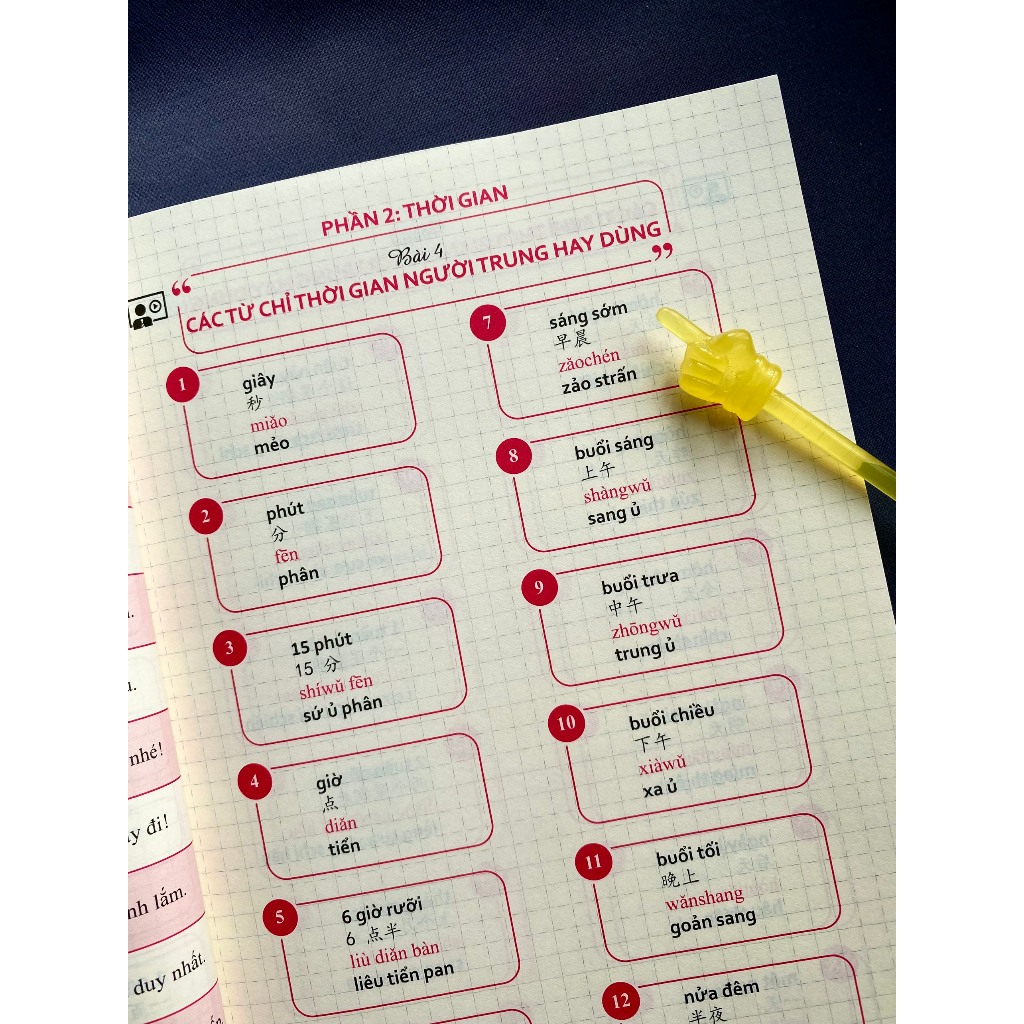 PHẦN 2: THỜI GIAN
Bài 4
“ CÁC TỪ CHỈ THỜI GIAN NGƯỜI TRUNG HAY DÙNG ”
1
giây
秒
miǎo
mẻo
2
phút
分
fēn
phân
3
15 phút
15 分
shíwǔ fēn
sứ ủ phân
4
giờ
点
diǎn
tiển
5
6 giờ rưỡi
6 点半
liù diǎn bàn
liêu tiển pan
7
sáng sớm
早晨
zǎochén
zảo strấn
8
buổi sáng
上午
shàngwǔ
sang ủ
9
buổi trưa
中午
zhōngwǔ
trung ủ
10
buổi chiều
下午
xiàwǔ
xa ủ
11
buổi tối
晚上
wǎnshang
goản sang
12
nửa đêm
半夜
nhé!
đi!
lắm.
duy nhất.